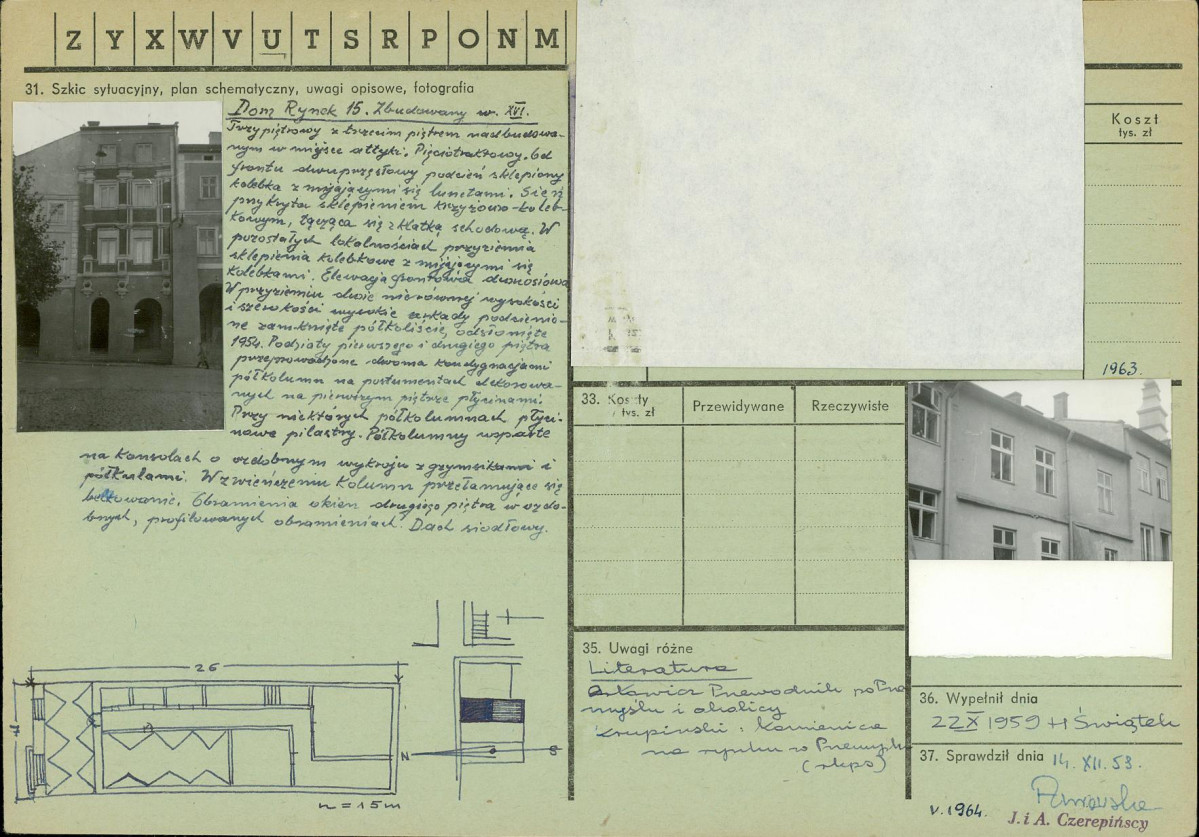 Z Y X W V U T S R P O N M
31. Szkic sytuacyjny, plan schematyczny, uwagi opisowe, fotografia
Dom Rynek 15. Zbudowany w. XVI.
Trzypiętrowy z trzecim piętrem nadbudowa-
nym w miejsce attyki. Pięciotraktowy. Od
frontu dwuprzęsłowy podcień sklepiony
kolebką z mijającymi się lunetami. Sień
przykryta sklepieniem krzyżowo-koleb-
kowym, łącząca się z klatką schodową. W
pozostałych lokalnościach przyziemia
sklepienia kolebkowe z mijającymi się
kolebkami. Elewacja frontowa dwuosiowa
W przyziemiu dwie nierównej wysokości
i szerokości wysokie arkady podcienio-
ne zamknięte półkoliście, odsłonięte
1954. Podziały pierwszego i drugiego piętra
przeprowadzone dwoma kondygnacjami
półkolumn na postumentach dekorowa-
nych na pierwszym piętrze płycinami.
Przy niektórych półkolumnach płyci-
nowe pilastry. Półkolumny wsparte
na konsolach o ozdobnym wykroju z gzymsikami i
półkulami. W zwieńczeniu kolumn przełamujące się
belkowanie. Obramienia okien drugiego piętra w ozdo-
bnych, profilowanych obramieniach. Dach siodłowy.
26
N S
n = 15 m
Koszt
tys. zł
1963
33. Koszty
tys. zł
Przewidywane
Rzeczywiste
35. Uwagi różne
Literatura
Przewodnik po Prze
myślu i okolicy
Krupiński: Kamienice
na rynku w Przemyślu
(rkps)
36. Wypełnił dnia
22 X 1959 H Świątek
37. Sprawdził dnia 14. XII. 53.
V. 1964.
J. i A. Czerepińscy